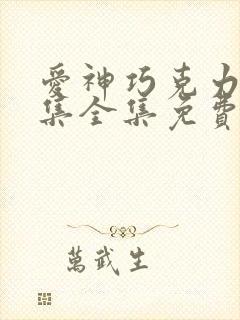 愛神巧克力
集全集免費
萬武生